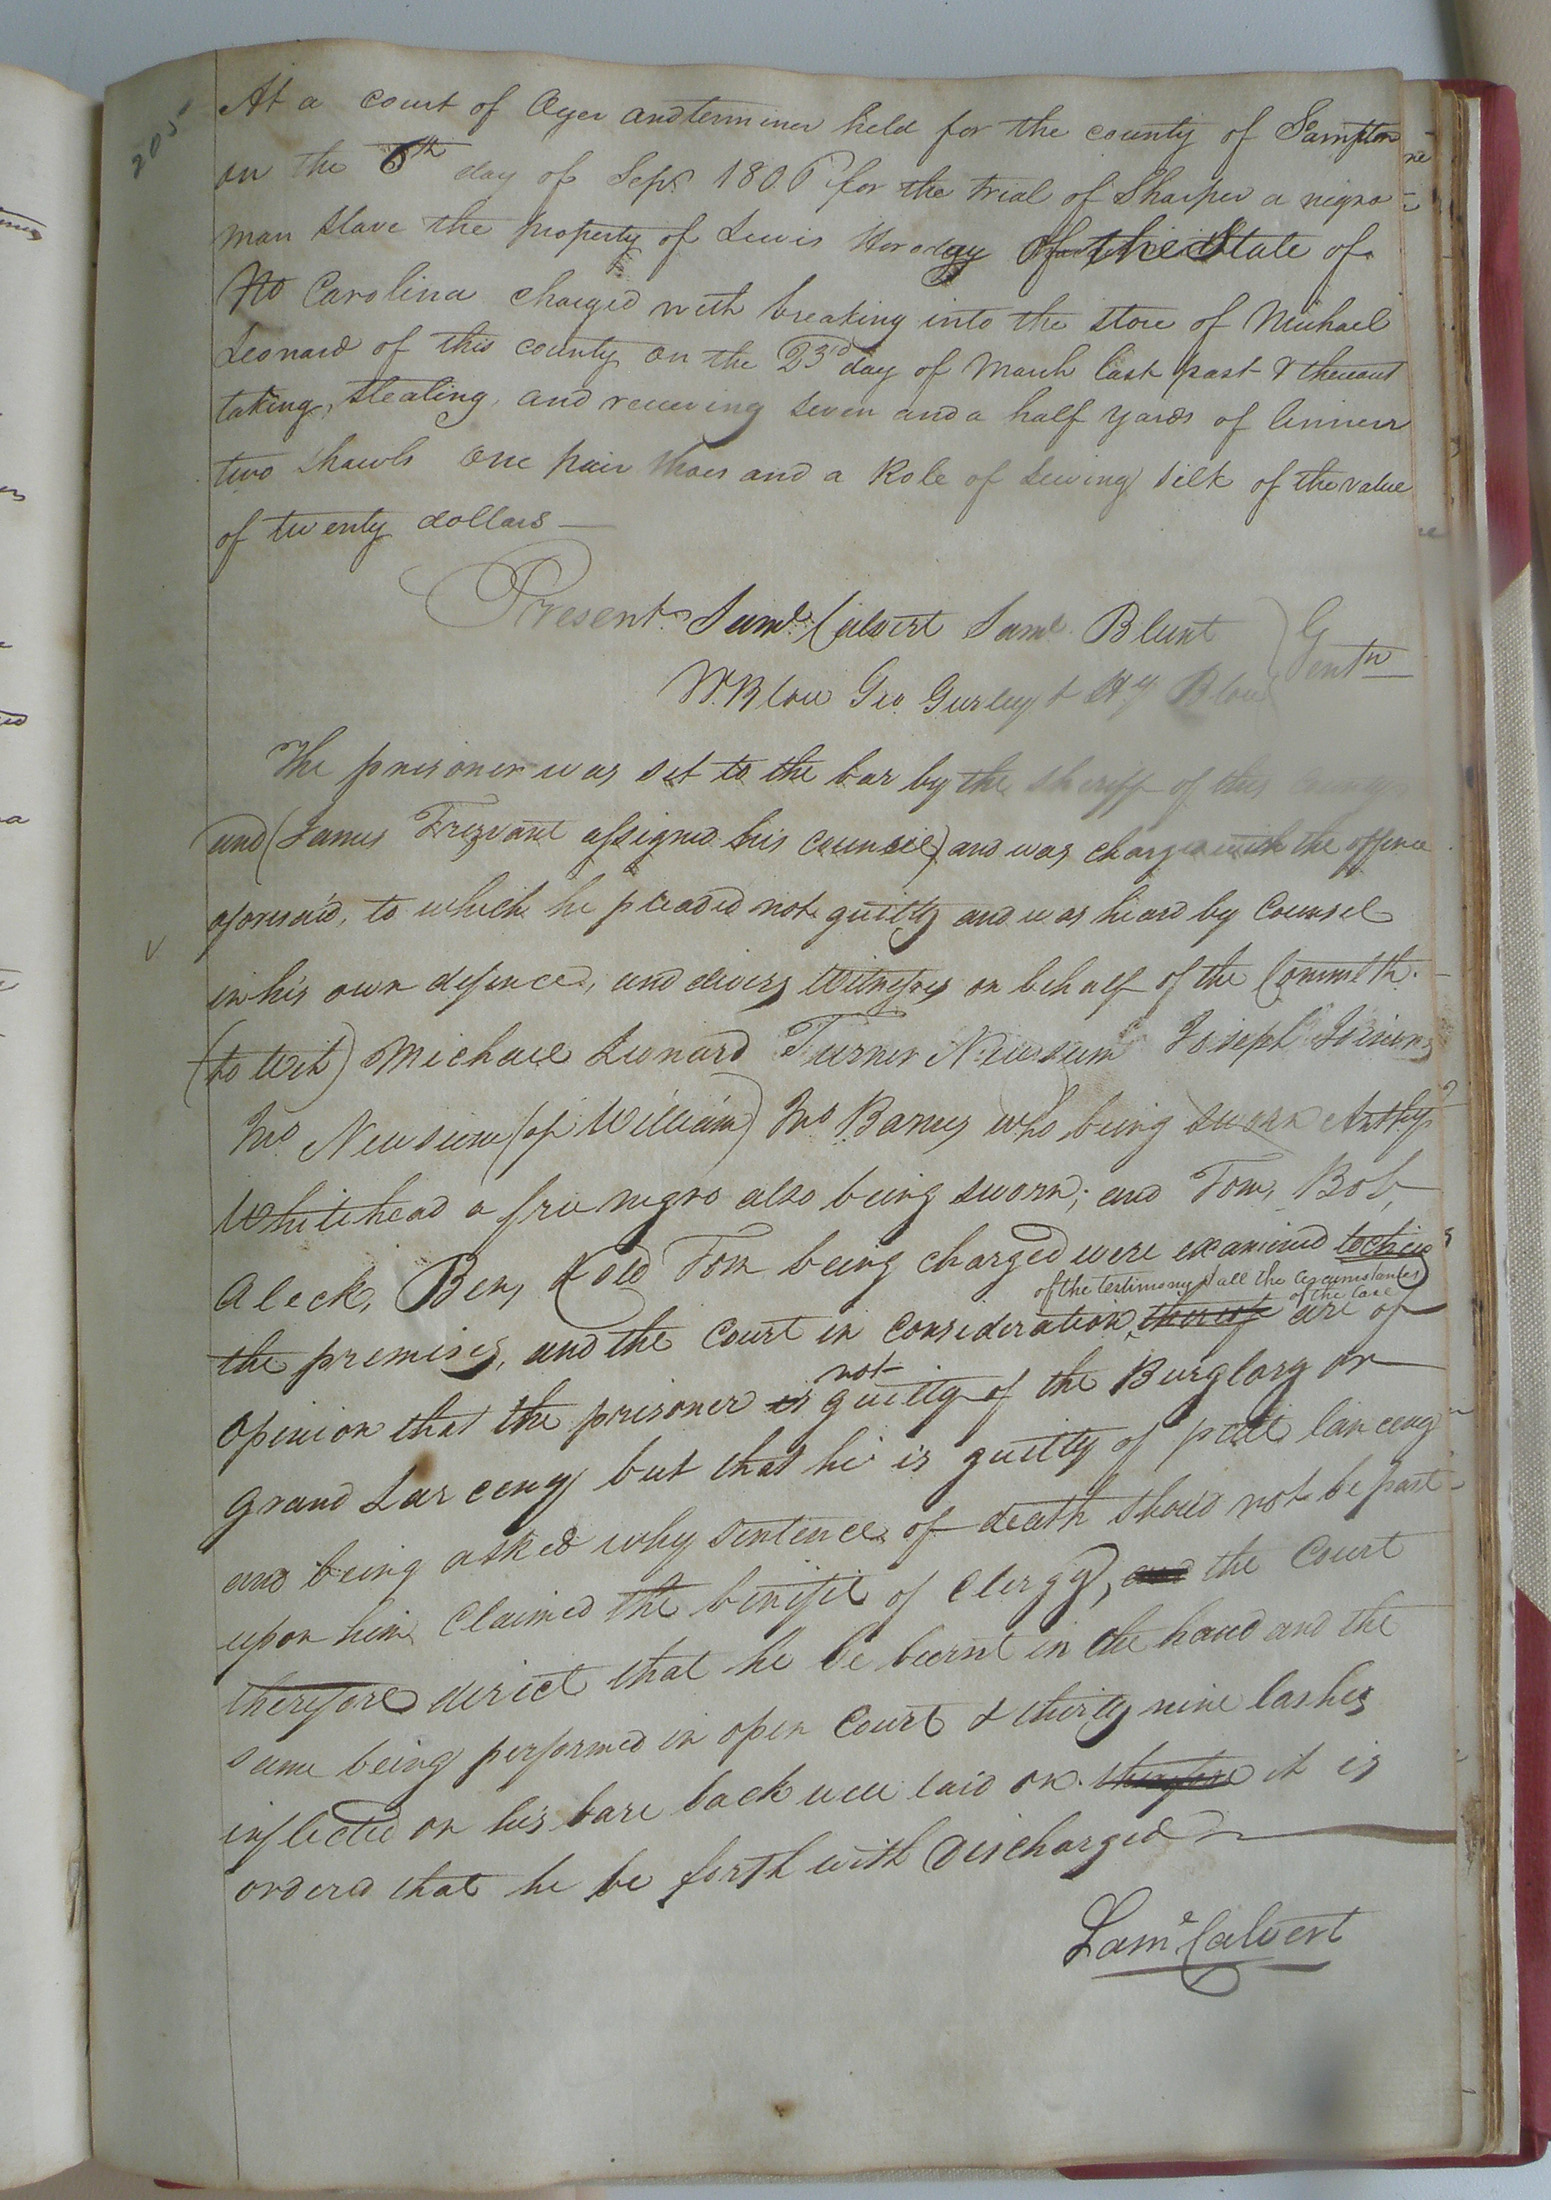 205
At a court of Oyer and terminer held for the county of Sampton
on the 6th day of Sept 1806 for the trial of Sharper a negro
man slave the property of Lewis of the State of
No Carolina charged with breaking into the store of Michael
Leonard of this county on the 23rd day of March last past & thereout
taking, stealing, and receiving seven and a half yards of linnen
two shawls one pair shoes and a Role of sewing silk of the value
of twenty dollars —
Present Saml. Calvert Saml. Blunt
Gentn
W. Blow Geo. Gurley & Hy Blow
The prisoner was set to the bar by the sheriff of this county
and (James Trezvant assigned his councel) and was charged with the offence
aforesaid, to which he pleaded not guilty and was heard by Counsel
in his own defence, and divers Witnesses on behalf of the Commlth.
(to Wit) Michael Leonard Turner Newsum Joseph Joiner
Jno Newsum (of William) Jno Barnes who being sworn Anthy
Whitehead a free negro also being sworn; and Tom, Bob,
Aleck, Ben, & old Tom being charged were examined
of the testimony & all the Circumstances
of the Case
the premises, and the Court in consideration thereof are of
not
opinion that the prisoner is guilty of the Burglary or
grand Larceny but that he is guilty of petit larceny
and being asked why sentence of death should not be past
upon him claimed the benifit of Clergy, and the Court
therefore direct that he be burnt in the hand and the
same being performed in open Court & thirty nine lashes
inflicted on his bare back well laid on therefore it is
ordered that he be forth with Discharged
Saml Calvert